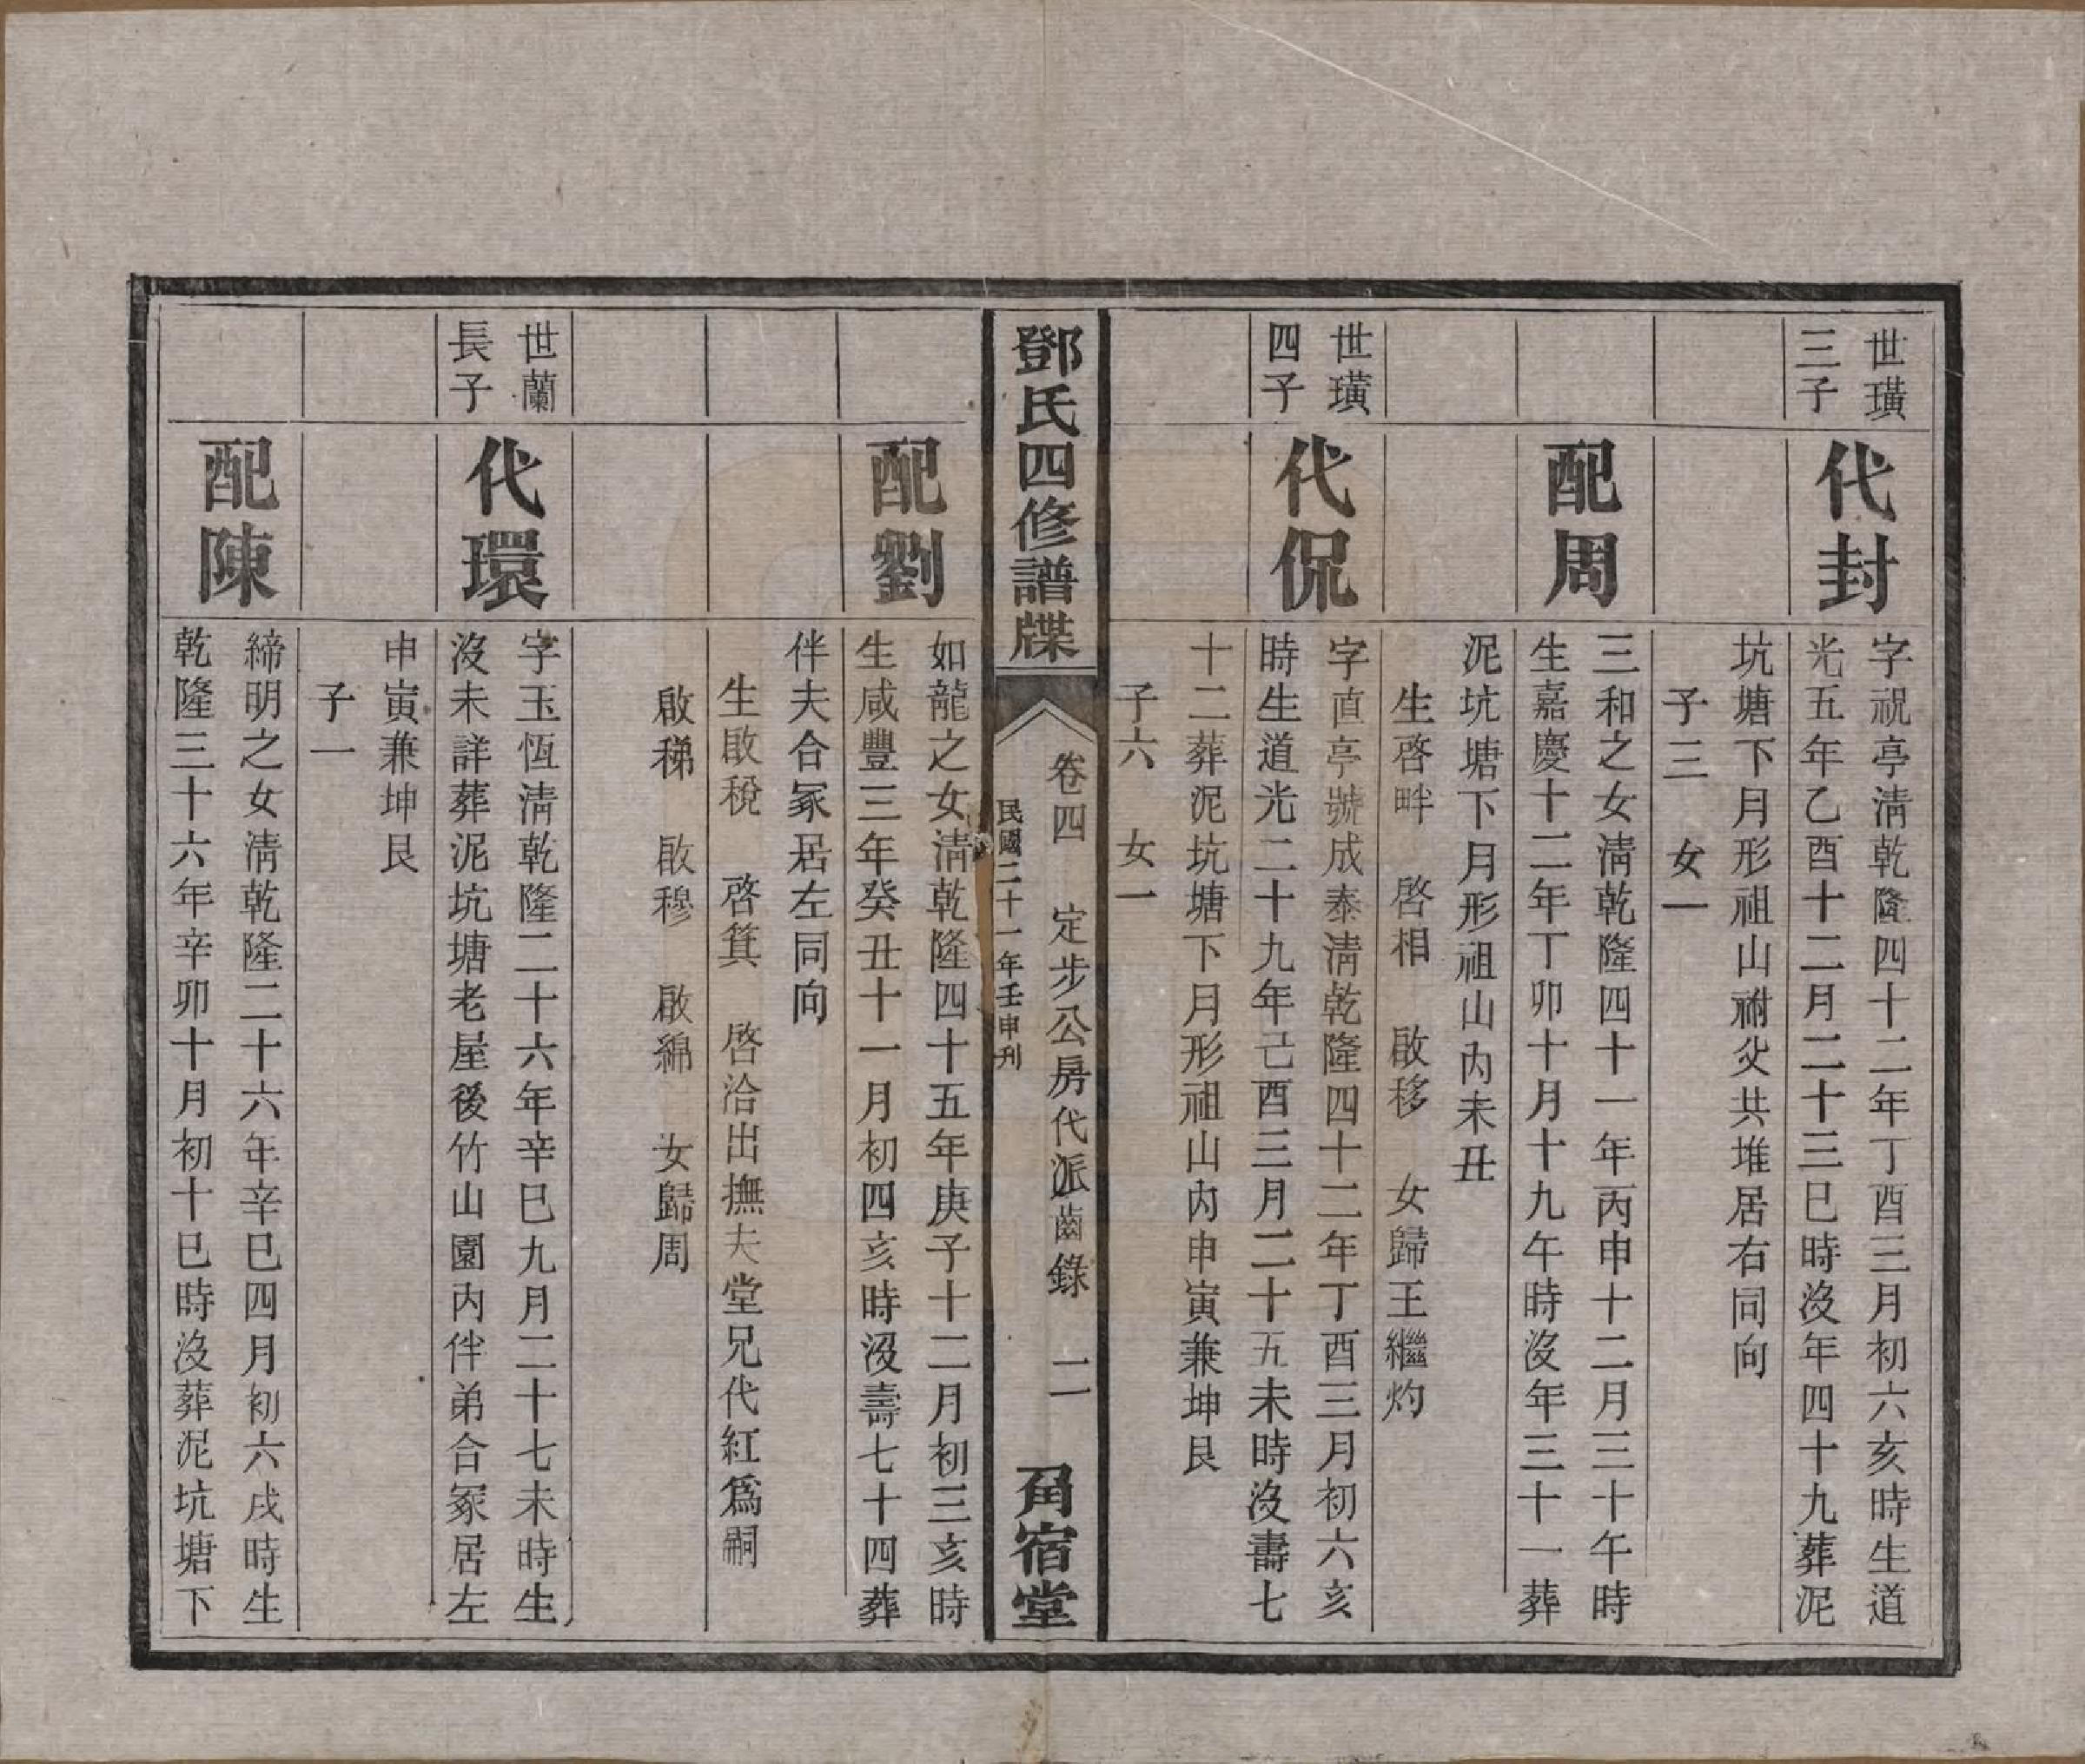 世璜
三子
代封
字祝亭淸乾隆四十二年丁酉三月初六亥時生道
光五年乙酉十二月二十三巳時沒年四十九葬泥
坑塘下月形祖山祔父共堆居右同向
子三　女一
配周
三和之女淸乾隆四十一年丙申十二月三十午時
生嘉慶十二年丁卯十月十九午時沒年三十一葬
泥坑塘下月形祖山內未丑
生啓畔　啓相　啟移　女歸王繼灼
世璜
四子
代侃
字直亭號成泰淸乾隆四十二年丁酉三月初六亥
時生道光二十九年己酉三月二十五未時沒壽七
十二葬泥坑塘下月形祖山內申寅兼坤艮
子六　女一
鄧氏四修譜牒
卷四　定步公房代派齒錄　二
民國二十一年壬申刊
角宿堂
配劉
如龍之女淸乾隆四十五年庚子十二月初三亥時
生咸豐三年癸丑十一月初四亥時沒壽七十四葬
伴夫合冢居左同向
生啟稅　啓箕　啓洽出撫夫堂兄代紅爲嗣
啟稊　啟穆　啟綿　女歸周
世蘭
長子
代環
字玉恆淸乾隆二十六年辛巳九月二十七未時生
沒未詳葬泥坑塘老屋後竹山園內伴弟合冢居左
申寅兼坤艮
子一
配陳
締明之女淸乾隆二十六年辛巳四月初六戌時生
乾隆三十六年辛卯十月初十巳時沒葬泥坑塘下